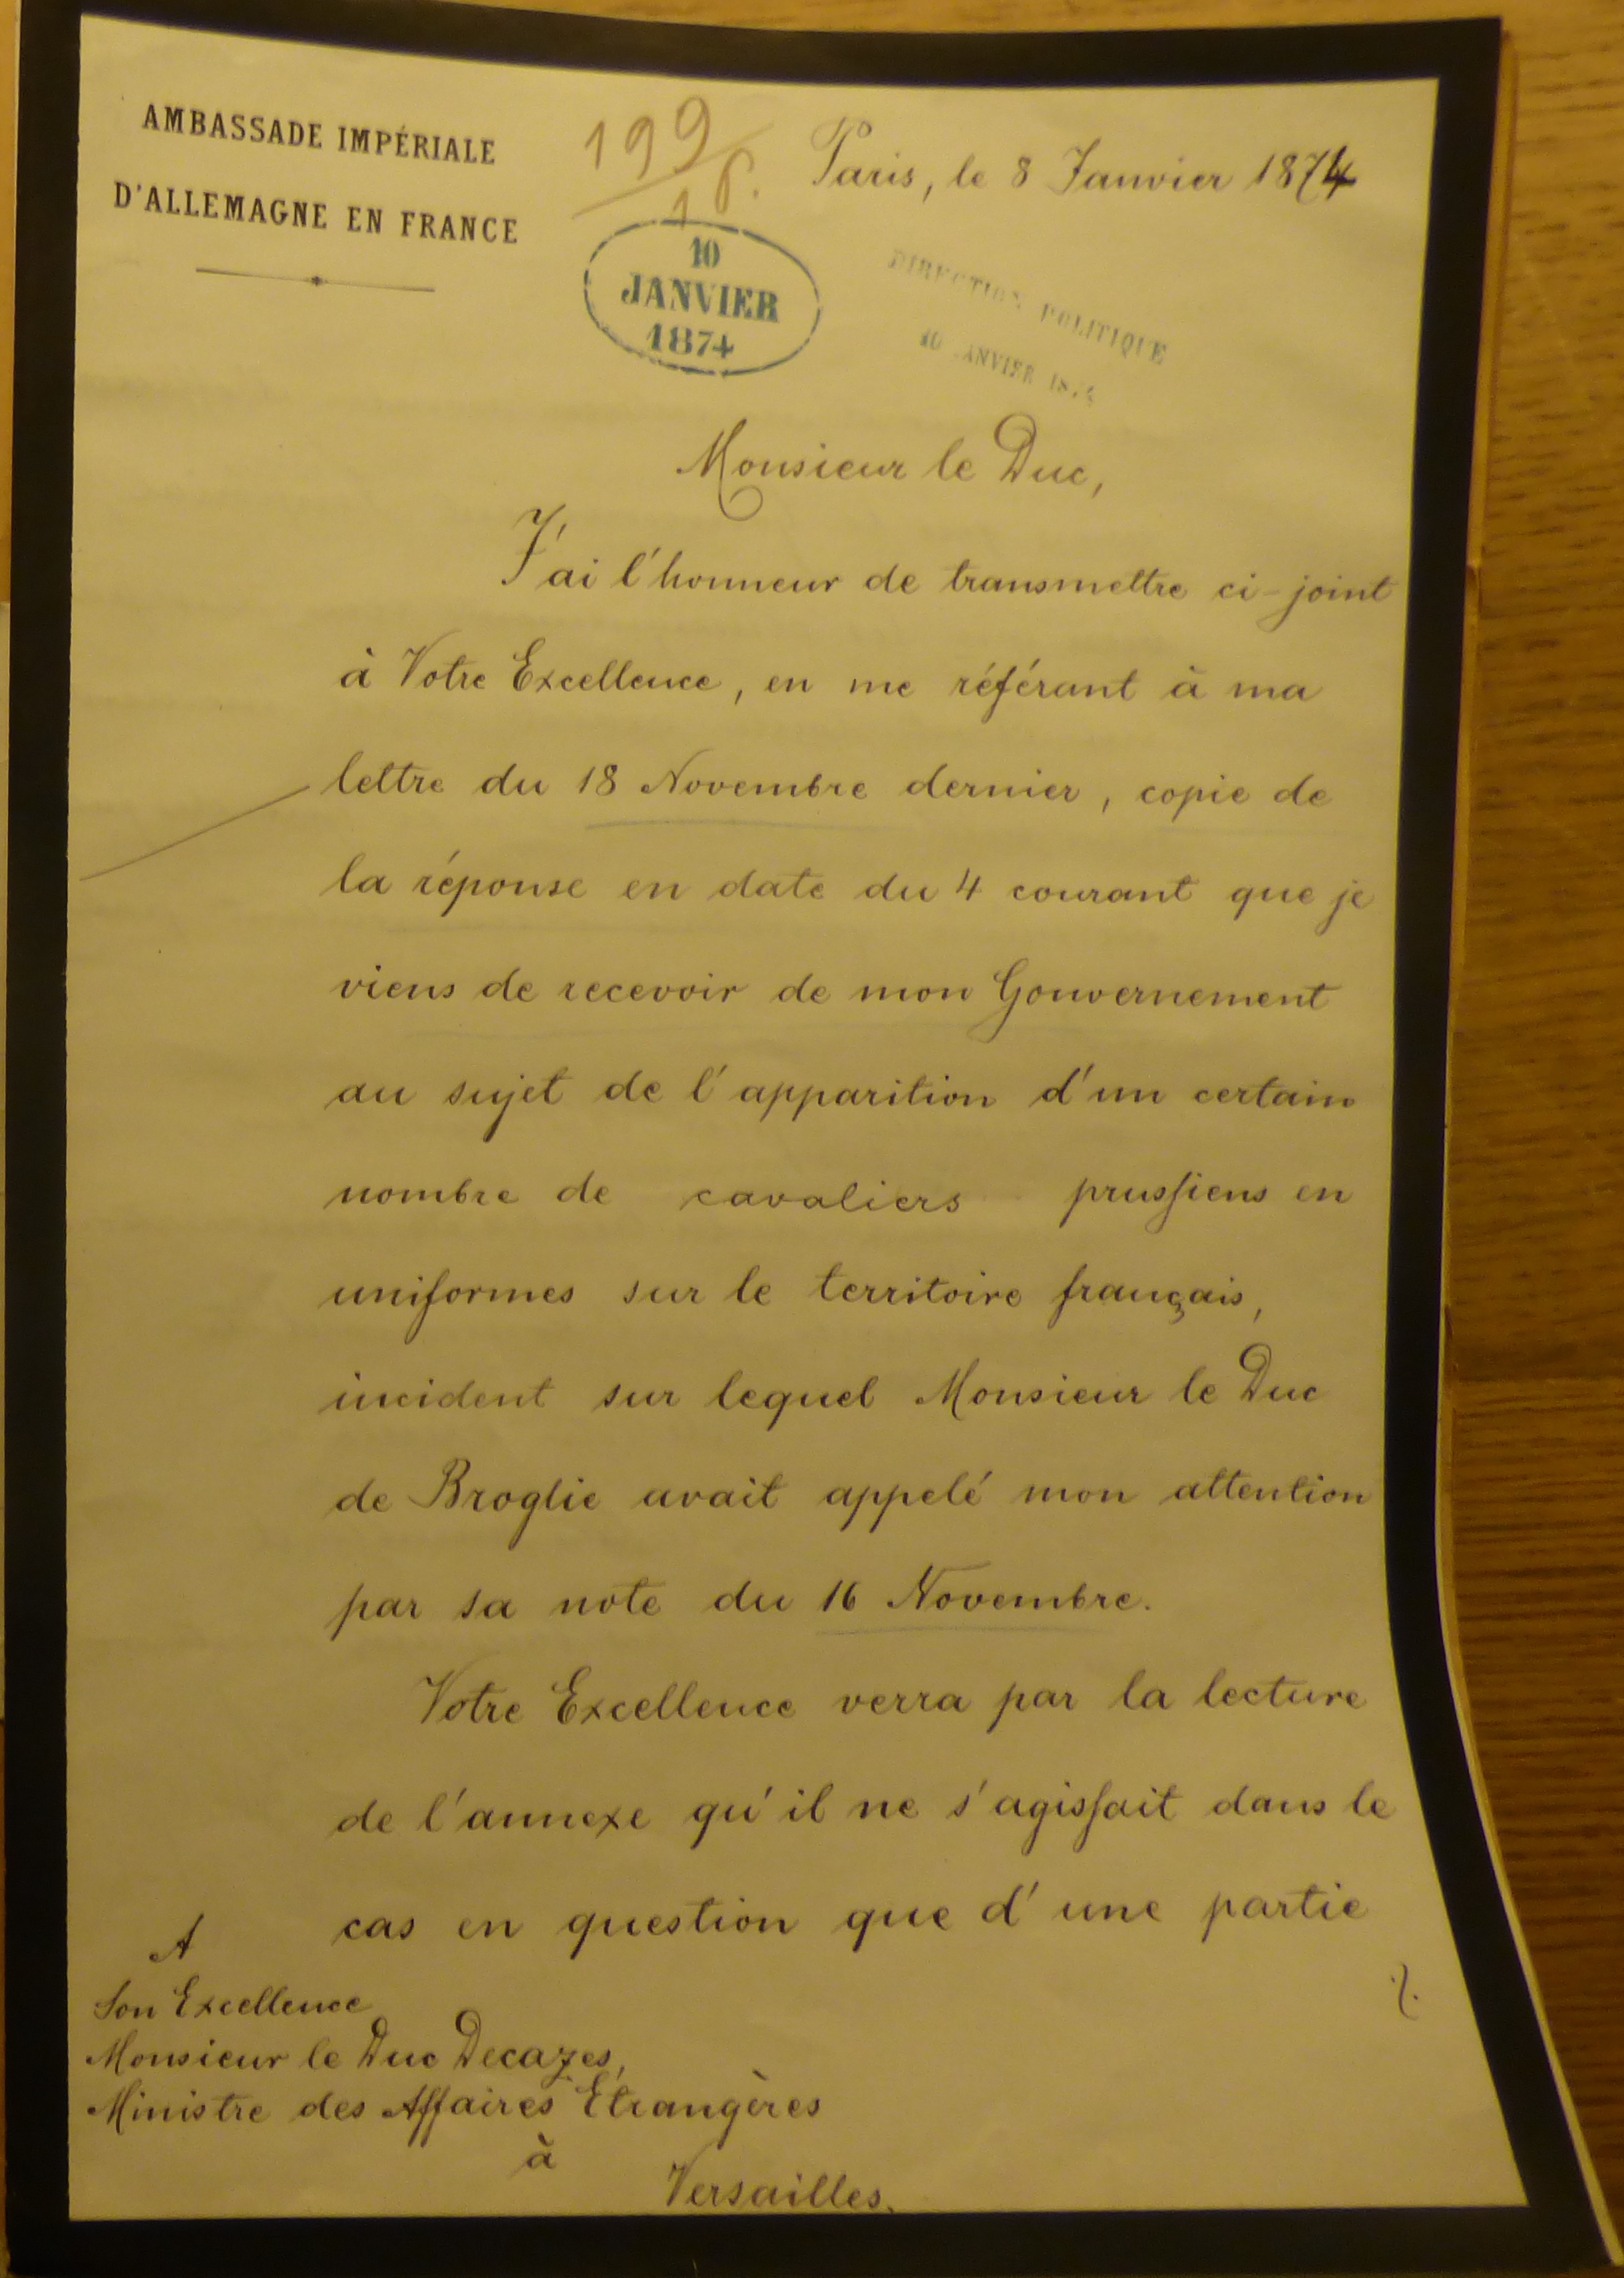 AMBASSADE IMPÉRIALE
D'ALLEMAGNE EN FRANCE
199
Paris, le 8 Janvier 1874
10
JANVIER
1874
DIRECTION POLITIQUE
10 JANVIER 1874
Monsieur le Duc,
J'ai l'honneur de transmettre ci-joint
à Votre Excellence, en me référant à ma
lettre du 18 Novembre dernier, copie de
la réponse en date du 4 courant que je
viens de recevoir de mon Gouvernement
au sujet de l'apparition d'un certain
nombre de cavaliers prusſiens en
uniformes sur le territoire français,
incident sur lequel Monsieur le Duc
de Broglie avait appelé mon attention
par sa note du 16 Novembre.
Votre Excellence verra par la lecture
de l'annexe qu'il ne s'agisſait dans le
cas en question que d'une partie
A
Son Excellence
Monsieur le Duc Decazes,
Ministre des Affaires Étrangères
à
Versailles.